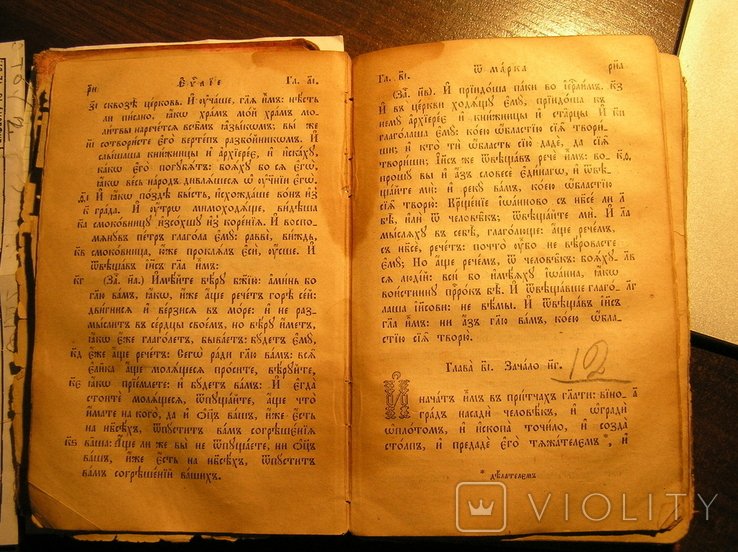 рн҃ Єѵ҃ліе Гл. а҃і.
з҃і сквозѣ церковь. И҆ ᲂу҆чаше, гл҃ѧ и҆̀мъ: нѣсть
ли писано. ꙗ҆́кѡ храмъ мой храмъ мо-
литвы наречетсѧ всѣмъ ꙗ҆зыкѡмъ: вы же
и҃і сотвористе є҆го̀ вертепъ разбойникѡмъ. И҆
слышаша книжницы и҆ а҆рхїерее, и҆ и҆скахꙋ,
какѡ є҆го̀ погꙋбѧтъ: боѧхꙋ бо сѧ є҆гѡ̀,
ꙗ҆́кѡ весь народъ дивлѧшесѧ ѡ҆ ᲂу҆ченїи є҆гѡ̀.
ѳ҃і И҆ ꙗ҆́кѡ поздѣ бысть, и҆схождаше вонъ и҆з̾
к҃ града. И҆ ᲂу҆трѡ мимоходѧще, видѣша
ка смоковницꙋ и҆зсохшꙋ и҆з̾ коренїѧ. И҆ воспо-
мѧнꙋвъ петръ глагола є҆мꙋ̀: равві, виждь,
к҃в смоковница, ю҆́же проклѧлъ є҆сѝ, ᲂу҆сше. И҆
ѿвѣщавъ і҆и҃съ гл҃а и҆̀мъ:
кг (За҃. н҃а.) И҆мѣйте вѣрꙋ бж҃їю: а҆минь бо
гл҃ю вамъ, ꙗ҆́кѡ, и҆́же а҆́ще речетъ горѣ сей:
двигнисѧ и҆ верзисѧ въ море: и҆ не раз-
мыслитъ въ сердцы своемъ, но вѣрꙋ и҆́метъ,
ꙗ҆́кѡ є҆́же глаголетъ, бываетъ: бꙋдетъ є҆мꙋ̀,
кд є҆́же а҆́ще речетъ. Сегѡ̀ ради гл҃ю вамъ: всѧ̑
є҆ли̑ка а҆́ще молѧщесѧ просите, вѣрꙋйте,
ке ꙗ҆́кѡ прїемлете: и҆ бꙋдетъ вамъ: И҆ є҆гда̀
стоите молѧщесѧ, ѿпꙋщайте, а҆́ще что
и҆́мате на кого, да и҆ ѻ҆ц҃ъ вашъ, и҆́же є҆́сть
на нб҃сѣхъ, ѿпꙋститъ вамъ согрѣшенїѧ
к҃ѕ ваша: А҆́ще ли же вы не ѿпꙋщаете, ни ѻ҆ц҃ъ
вашъ, и҆́же є҆́сть на нб҃сѣхъ, ѿпꙋститъ
вамъ согрѣшенїй вашихъ.
Гл. в҃і. Ѿ марка рн҃а
(За҃. н҃в.) И҆ прїидоша паки во і҆ерⷭ҇лимъ. кз
И҆ въ церкви ходѧщꙋ є҆мꙋ̀, прїидоша къ
немꙋ а҆рхїерее и҆ книжницы и҆ старцы И҆ ки
глаголаша є҆мꙋ̀: коею ѡ҆бластїю сїѧ̑ твори-
ши; и҆ кто ти ѡ҆бласть сїю даде, да сїѧ̑
твориши; І҆и҃съ же ѿвѣщавъ рече и҆̀мъ: во- кѳ
прошꙋ вы и҆ а҆́зъ словесе є҆динагѡ, и҆ ѿвѣ-
щайте ми: и҆ рекꙋ вамъ, коею ѡ҆бластїю
сїѧ̑ творю: Крⷭ҇щенїе і҆ѡанново съ нб҃се ли л҃
бѣ, и҆лѝ ѿ человѣкъ; ѿвѣщайте ми. И҆ ла
мыслѧхꙋ въ себѣ, глаголюще: а҆́ще речемъ,
съ нб҃се, речетъ: почто ᲂу҆̀бо не вѣровасте
є҆мꙋ̀; Но а҆́ще речемъ, ѿ человѣкъ: боѧхꙋ лв
сѧ людїй: вси бо и҆мѣѧхꙋ і҆ѡанна, ꙗ҆́кѡ
воистиннꙋ прⷪ҇рокъ бѣ. И҆ ѿвѣщавше глаго- лг
лаша і҆и҃сови: не вѣмы. И҆ ѿвѣщавъ і҆и҃съ
гл҃а и҆̀мъ: ни а҆́зъ гл҃ю вамъ, коею ѡ҆бла-
стїю сїѧ̑ творю.
Глава в҃і. Зачало н҃г. 12
И҆ начатъ и҆̀мъ въ притчахъ гл҃ати: вїно- а
градъ насади человѣкъ, и҆ ѡ҆гради
ѡ҆плотомъ, и҆ и҆скопа точило, и҆ созда
столпъ, и҆ предаде є҆го̀ тѧжателємъ*, и҆
* дѣлателємъ
VIOLITY